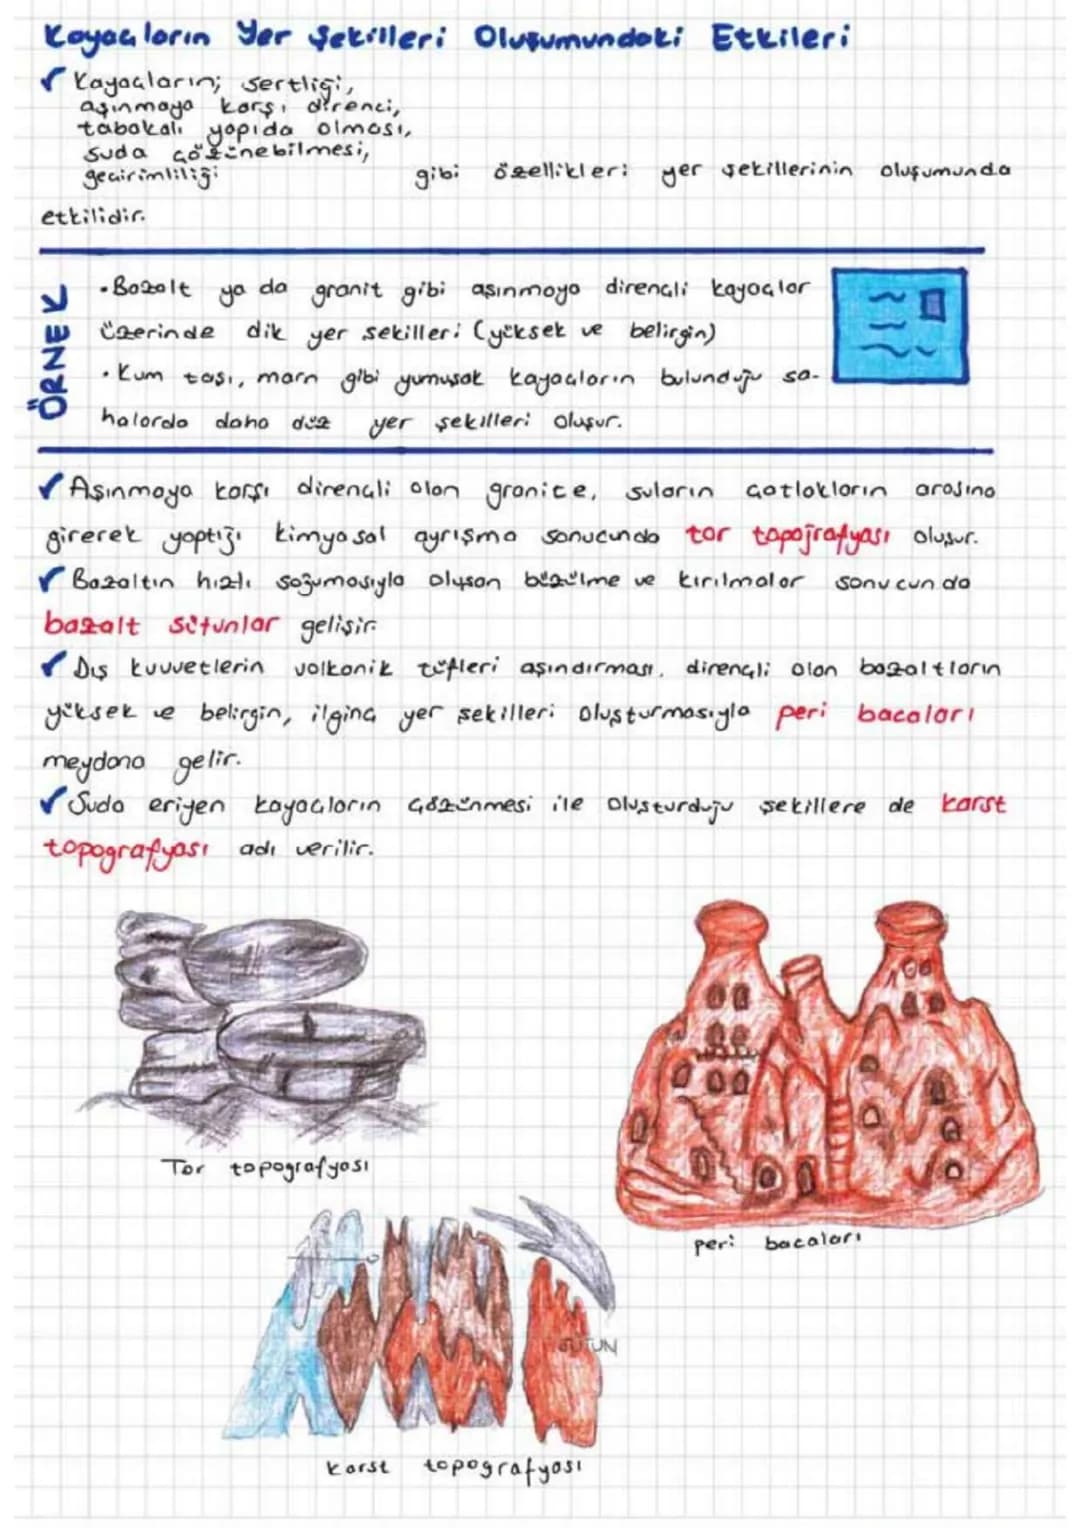 Kayaçların Yer Şekilleri Oluşumundaki Etkileri
✓ Kayaçların; sertliği,
aşınmaya karşı direnci,
tabakalı yapıda olması,
suda çözünebilmesi,
geçirimliliği gibi özellikleri yer şekillerinin oluşumunda
etkilidir.
ÖRNEK
• Bazalt ya da granit gibi aşınmaya dirençli kayaçlar
üzerinde dik yer şekilleri (yüksek ve belirgin)
• Kum taşı, marn gibi yumuşak kayaçların bulunduğu sa-
halarda daha düz yer şekilleri oluşur.
✓ Aşınmaya karşı dirençli olan granite, suların çatlakların arasına
girerek yaptığı kimyasal ayrışma sonucunda tor topoğrafyası oluşur.
✓ Bazaltın hızlı soğumasıyla oluşan büzülme ve kırılmalar sonucunda
bazalt sütunlar gelişir.
✓ Dış kuvvetlerin volkanik tüfleri aşındırması, dirençli olan bazaltların
yüksek ve belirgin, ilginç yer şekilleri oluşturmasıyla peri bacaları
meydana gelir.
✓ Suda eriyen kayaçların çözünmesi ile oluşturduğu şekillere de karst
topografyası adı verilir.
Tor topografyası
peri bacaları
SÜTUN
Karst topografyası